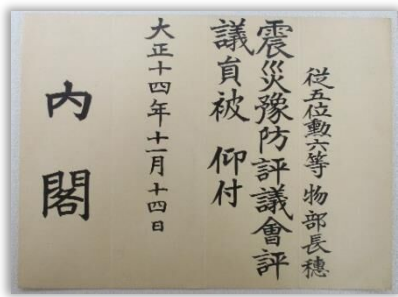 從五位勳六等 物部長穗
震災豫防評議會評
議員被 仰付
大正十四年十一月十四日
内閣